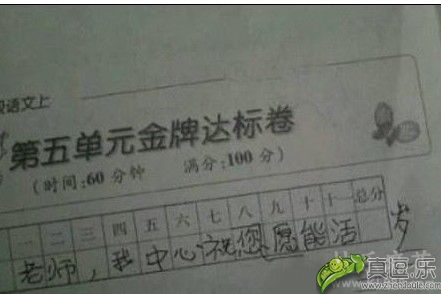 语文上
第五单元金牌达标卷
(时间:60 分钟 满分:100 分)
一 二 三 四 五 六 七 八 九 十 十一 总分
老师,我中心祝您愿能活 岁
真逗乐
www.zhendoule.com